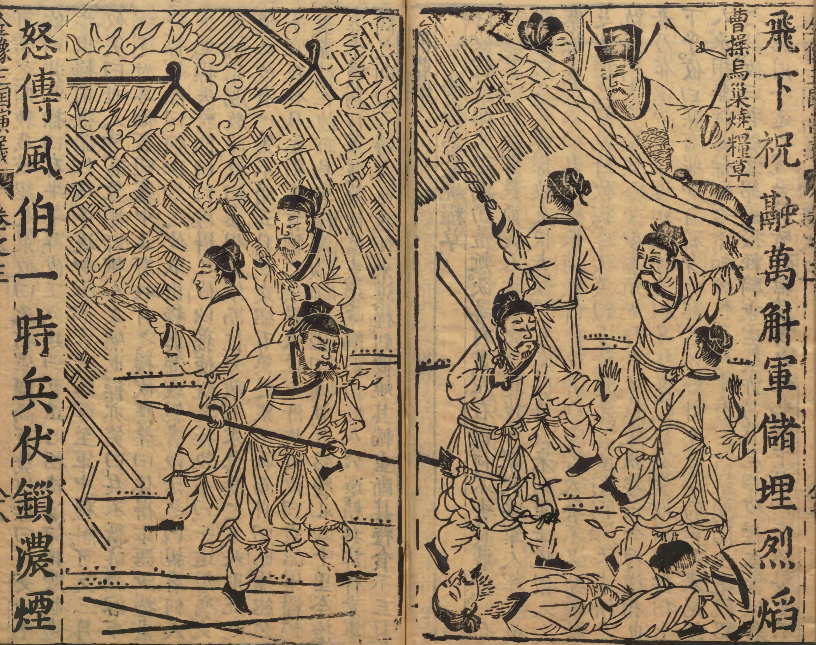 飛下祝融萬斛軍儲埋烈焰
曹操烏巢燒糧草
怒傳風伯一時兵仗鎖濃煙
全像三國演義 卷之三